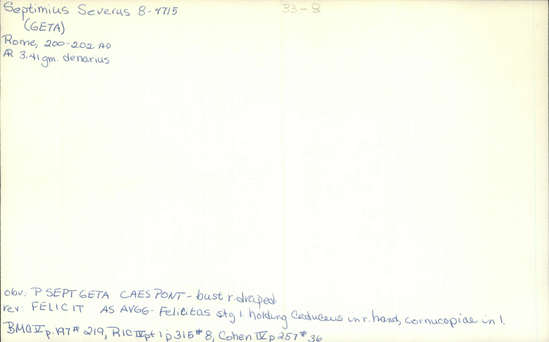 Septimius Severus 8-4715
33-8
(GETA)
Rome, 200-202 AD
AR 3.41 gm. denarius
obv. P SEPT GETA CAES PONT - bust r. draped
rev. FELICIT AS AVGG - Felicitas stg l holding Caduceus in r. hand, cornucopiae in l.
BMC V p. 197 # 219, RIC IV pt 1 p 315 # 8, Cohen IV p 257 # 36